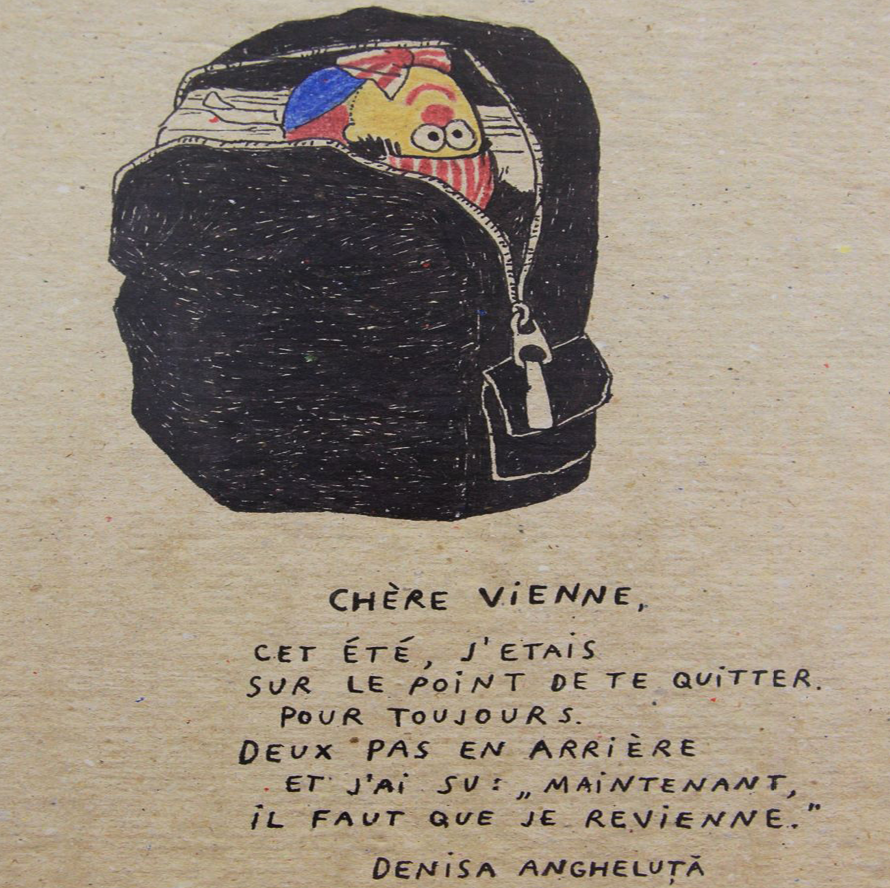 CHÈRE ViENNE,
CET ÉTÉ, J'ETAiS
SUR LE POiNT DE TE QUiTTER.
POUR TOUJOURS.
DEUX PAS EN ARRiÈRE
ET J'Ai SU: „MAiNTENANT,
iL FAUT QUE JE REViENNE."
DENiSA ANGHELUȚĂ